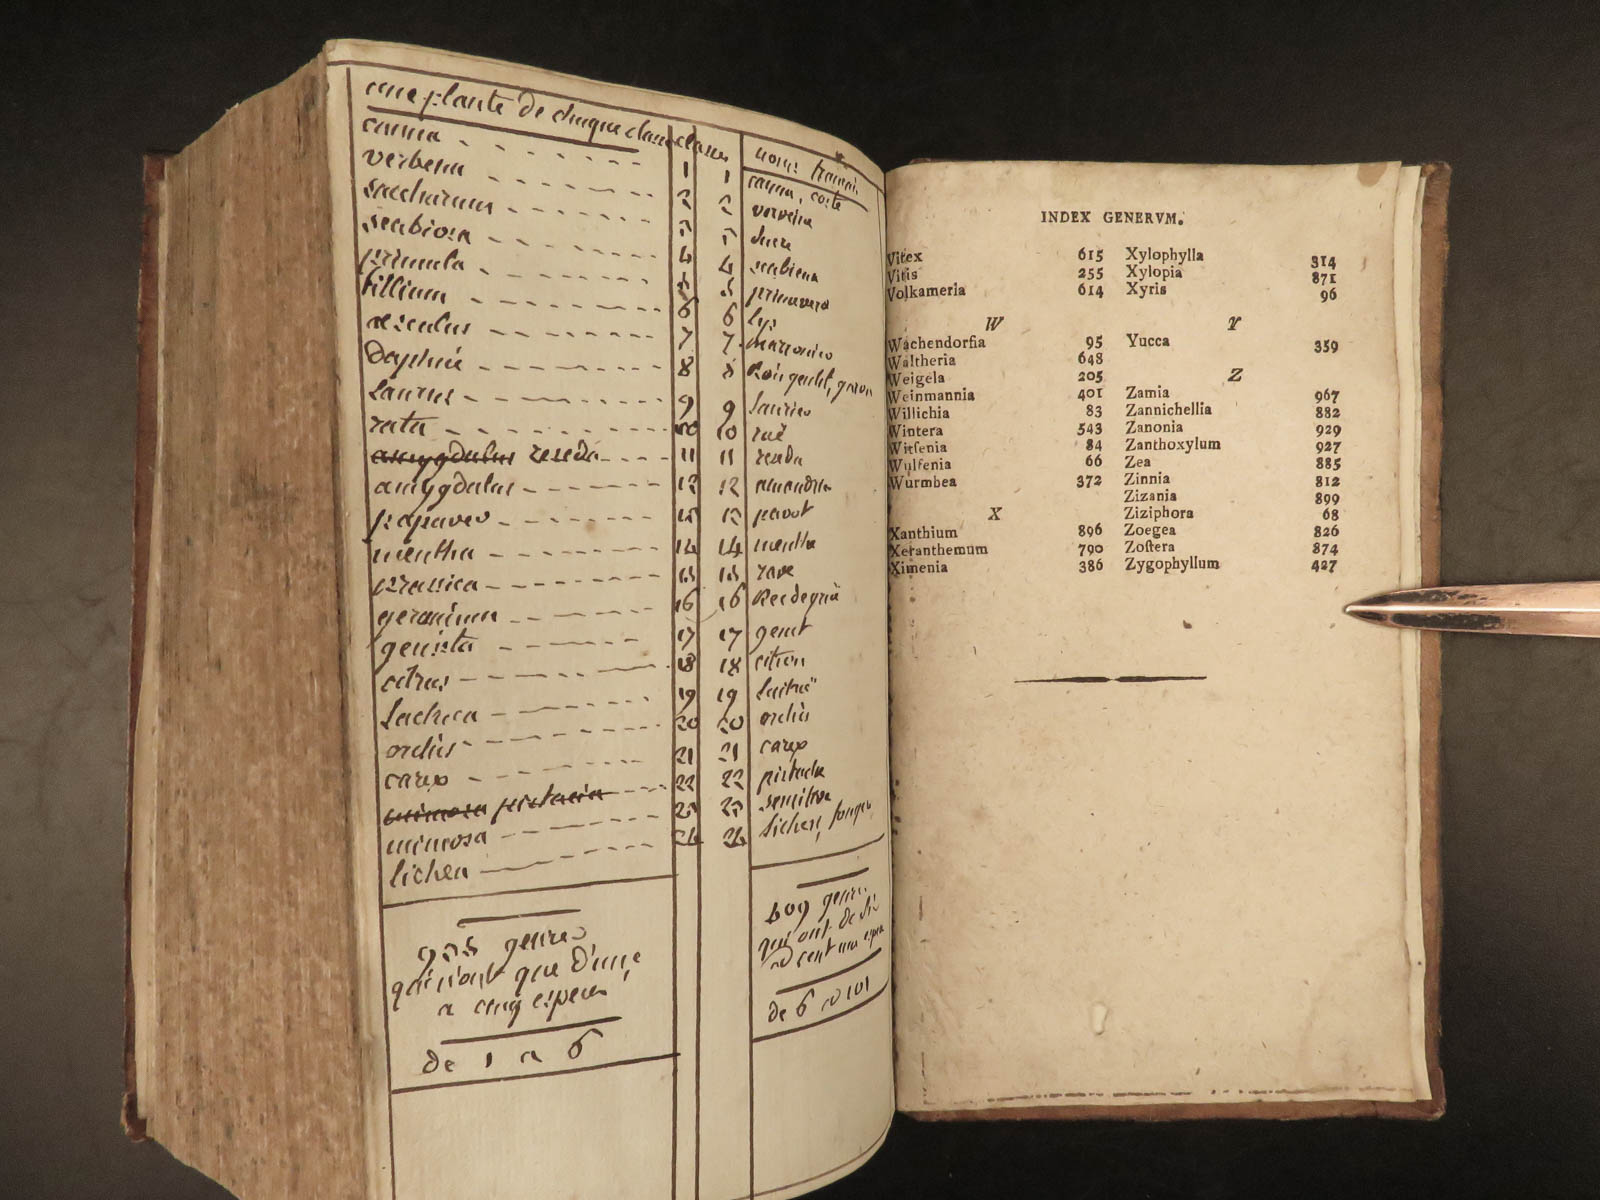 une plante de chaque classe classes
noms français
canna 1 1 canna, coste
verbena 2 2 verveine
saccharum 3 3 sucre
scabiosa 4 4 scabieuse
primula 5 5 primevere
lillium 6 6 lys
æsculus 7 7 marronier
Daphné 8 8
Laurus 9 9 laurier
ruta 10 10 rue
amygdalus reseda 11 11 reseda
amygdalus 12 12 amandier
papaver 13 13 pavot
mentha 14 14 menthe
brassica 15 15 rave
geranium 16 16 Bec de grue
genista 17 17 genet
citrus 18 18 citron
Lactuca 19 19 Laitue
orchis 20 20 orchis
carex 21 21 carex
mimosa pistacia 22 22 pistache
mimosa 23 23 sensitive
lichen 24 24 lichen,
935 genres
qui n'ont que d'une
a cinq especes
de 1 a 6
409 genres
qui ont de six
a cent une especes
de 6 a 101
INDEX GENERVM.
Vitex 615
Vitis 255
Volkameria 614
W
Wachendorfia 95
Waltheria 648
Weigela 205
Weinmannia 401
Willichia 83
Wintera 543
Witsenia 84
Wulfenia 66
Wurmbea 372
X
Xanthium 896
Xeranthemum 790
Ximenia 386
Xylophylla 314
Xylopia 871
Xyris 96
Y
Yucca 359
Z
Zamia 967
Zannichellia 882
Zanonia 929
Zanthoxylum 927
Zea 885
Zinnia 812
Zizania 899
Ziziphora 68
Zoegea 826
Zoſtera 874
Zygophyllum 427